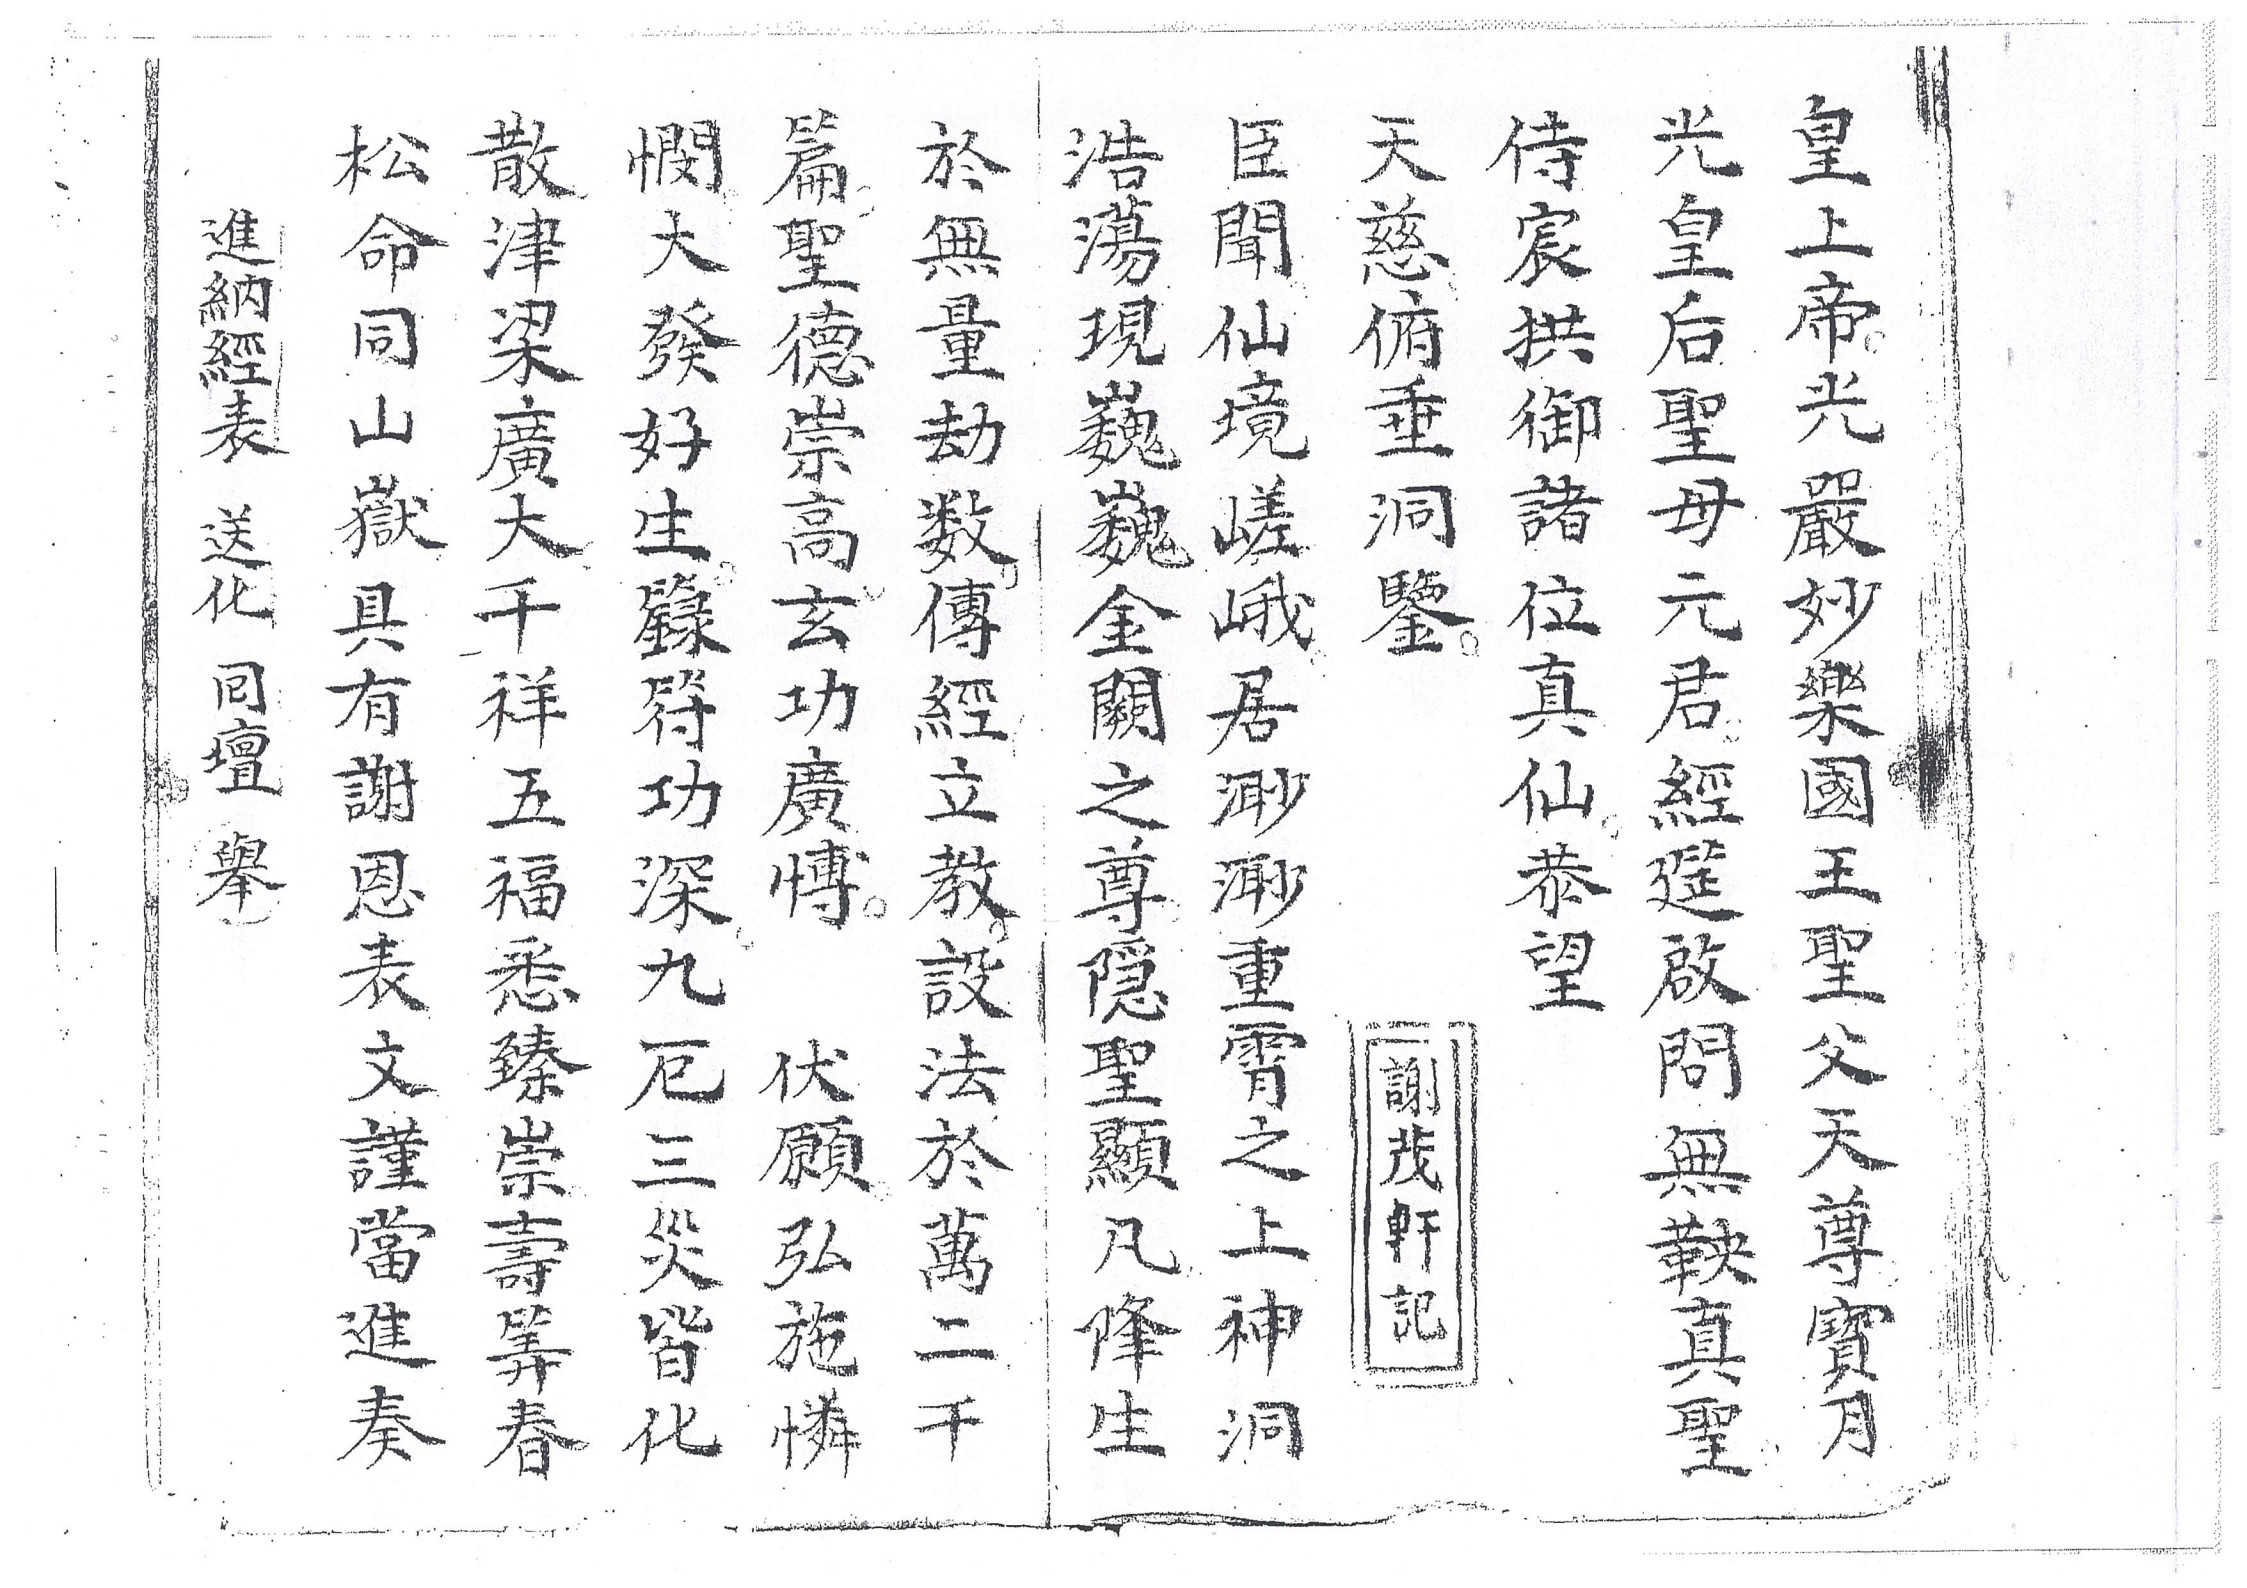 皇上帝光嚴妙樂國王聖父天尊寶月
光皇后聖母元君經筵啟問無鞅真聖
侍宸拱御諸位真仙恭望
天慈俯垂洞鑒
謝茂軒記
臣聞仙境嵯峨居渺渺重霄之上神洞
浩蕩現巍巍金闕之尊隱聖顯凡降生
於無量劫数傳經立教設法於萬二千
篇聖德崇高玄功廣博 伏願弘施憐
憫大發好生籙符功深九厄三災皆化
散津梁廣大千祥五福悉臻崇壽筭春
松命同山嶽具有謝恩表文謹當進奏
進納經表 送化 回壇 舉